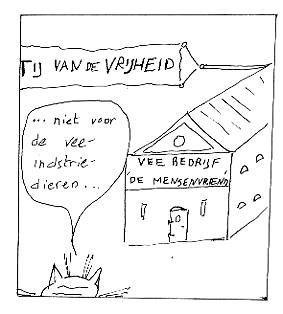 TIJ VAN DE VRIJHEID
... niet voor
de vee-
indstrie-
dieren...
VEE BEDRIJF
DE MENSENVRIEND